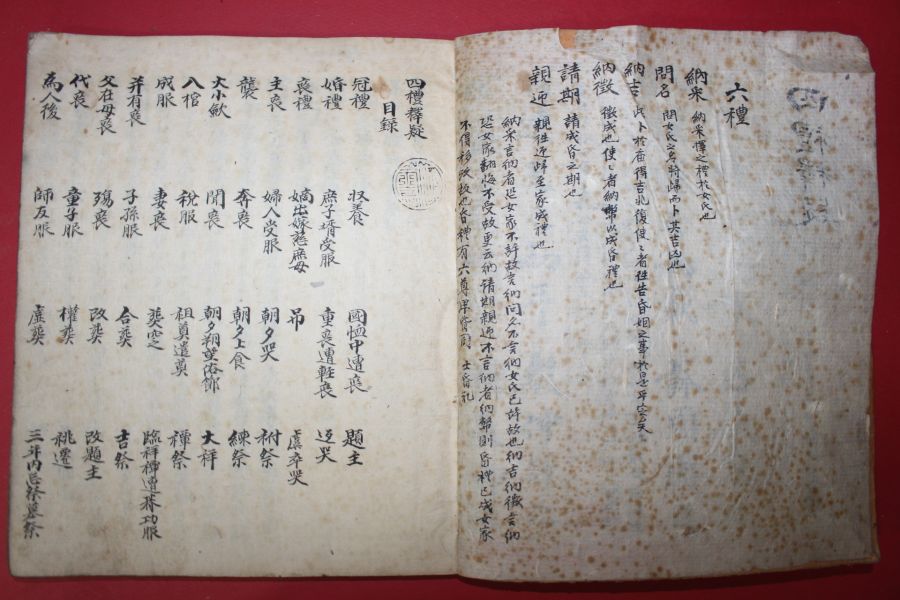 四禮釋疑
六禮
納采 納采擇之禮於女氏也
問名 問女氏之名將歸而卜其吉凶也
納吉 此卜於庙得吉兆復使〻者往告昏姻之事於是乎定矣
納徵 徵成也使〻者納幣以成昏禮也
請期 請成昏之期也
親迎 親往迎歸至家成禮也
納采言納者恐女家不許故言納問名不言納女氏已許故也納吉納徵言納
恐女家翻悔不受故更云納請期親迎不言納者納幣則昏禮已成女家
不得移改故也昏禮有六尊卑皆同 士昏礼
四禮釋疑
目錄
冠禮 收養 國恤中遭喪 題主
婚禮 庶子婿受服 重喪遭輕喪 返哭
喪禮 嫡出嫁慈庶母 吊 虞卒哭
主喪 婦人受服 朝夕哭 祔祭
襲 奔喪 朝夕上食 練祭
大小斂 聞喪 朝夕朔望俗節 大祥
入棺 稅服 祖奠遣奠 禫祭
成服 妻喪 葬窆 臨祥禫遭朞功服
并有喪 子孫服 合葬 吉祭
父在母喪 殤喪 改葬 改題主
代喪 童子服 權葬 祧遷
為人後 師友服 虛葬 三年內忌祭墓祭